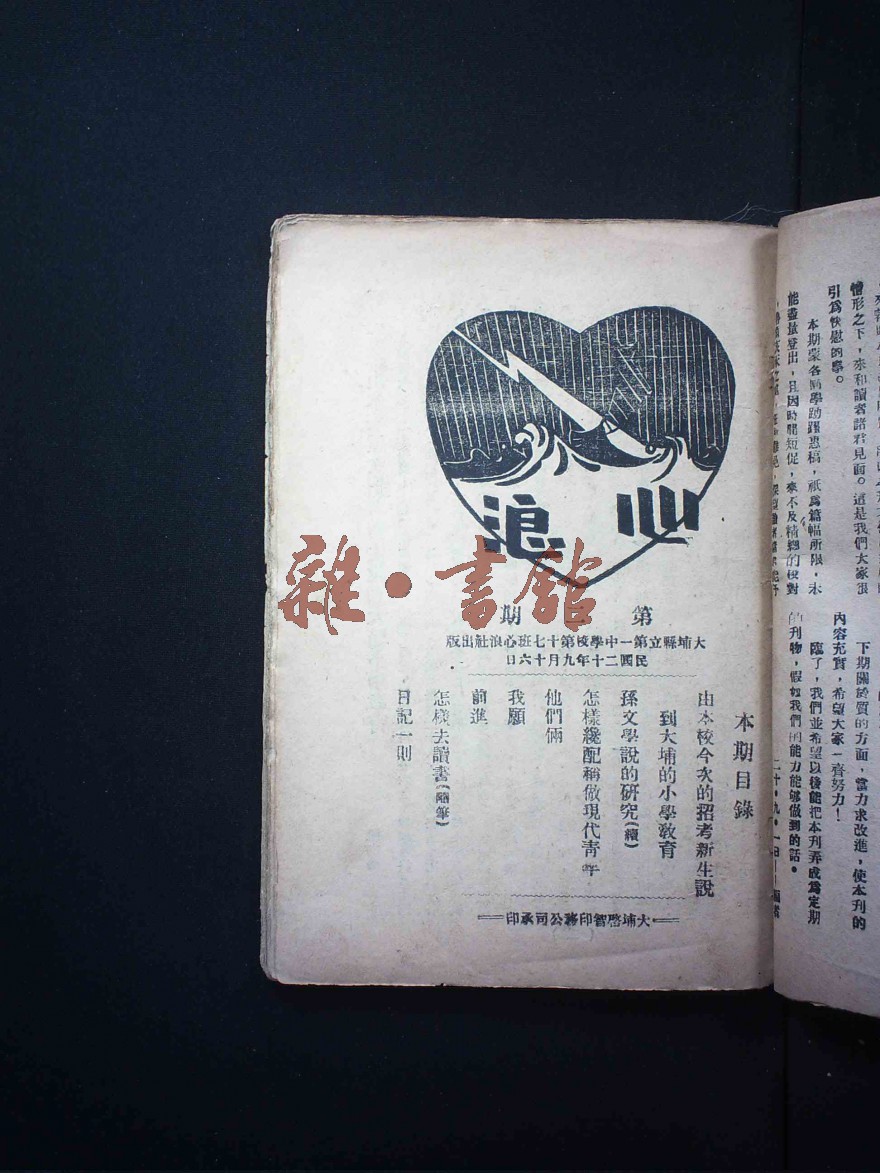 情形之下，來和讀者諸君見面。這是我們大家很
引爲快慰的事。
本期蒙各同學踴躍惠稿，祇爲篇幅所限，未
能盡量登出，且因時間短促，來不及精細的校對
下期關於質的方面，當力求改進，使本刊的
內容充實，希望大家一齊努力！
臨了，我們並希望以後能把本刊弄成爲定期
的刊物，假如我們的能力能够做到的話。
二十・九・一日——編者
心浪
第 期
大埔縣立第一中學校第十七班心浪社出版
民國二十年九月十六日
本期目錄
由本校今次的招考新生說
到大埔的小學敎育
孫文學說的研究(續)
怎樣纔配稱做現代青年
他們倆
我願
前進
怎樣去讀書(隨筆)
日記一則
大埔啓智印務公司承印
雜・書館